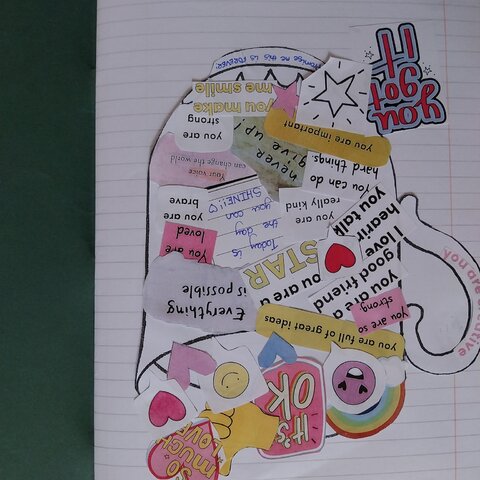 SO
MUCH
LOVE
IT'S
OK
you are full of great ideas
you are so
strong
Everything
is possible
you are a
good friend
you are a
STAR
I love
hearing
you talk
You are
loved
Today is
the day
you can
SHINE!!
you are
brave
you are
really kind
You can do
hard things
Your voice
can change the world
never
give
up!
you are
strong
you are important
you make
me smile
You
got
IT